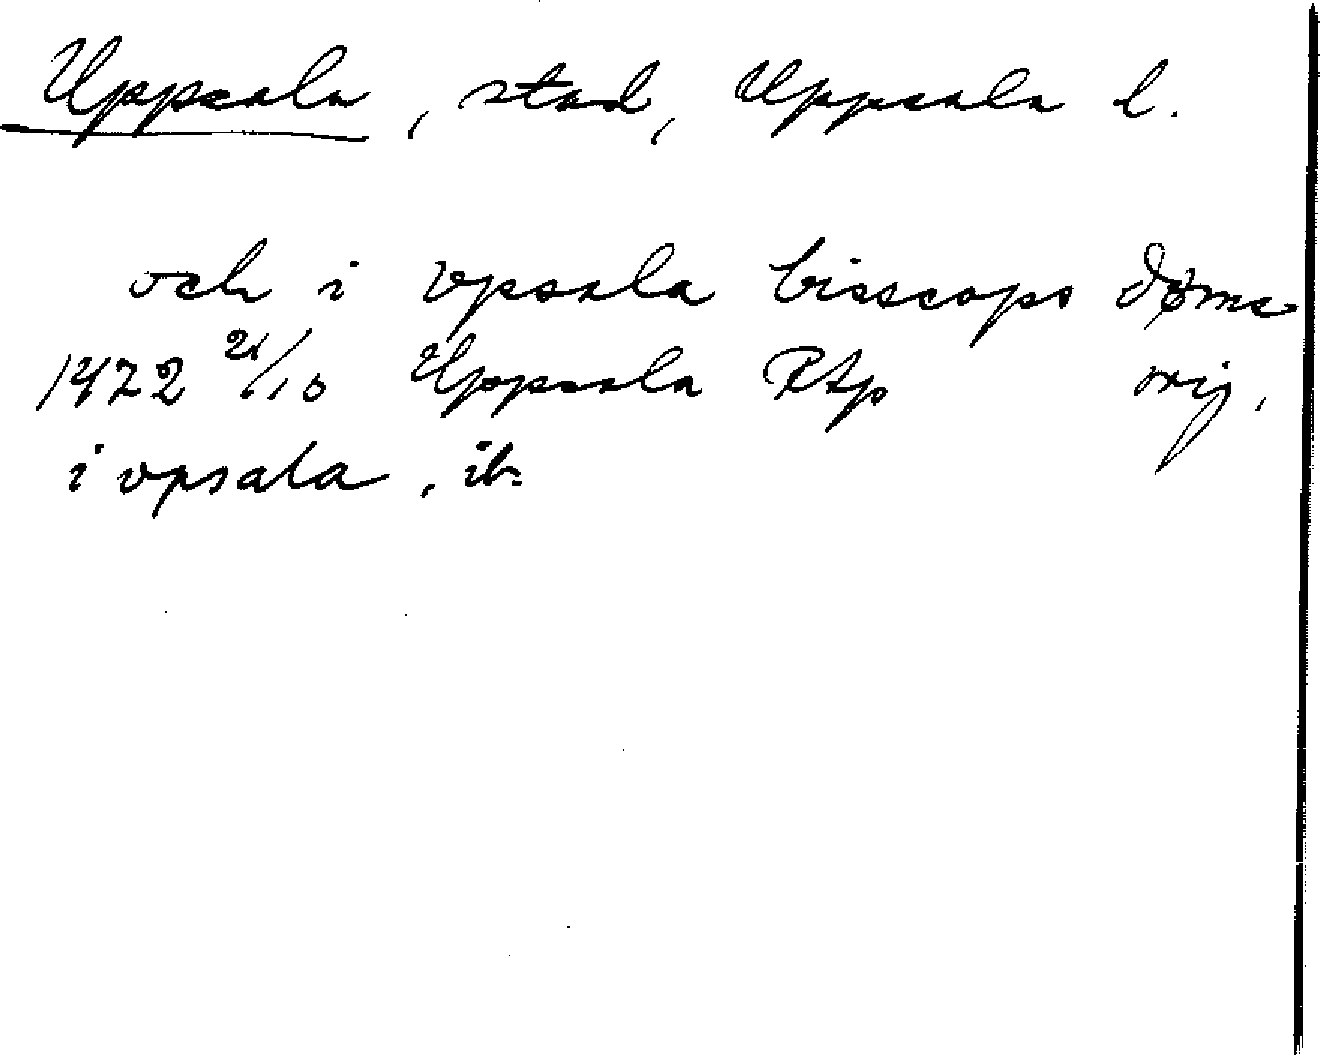 Uppsala, stad, Uppsala l.
och i vpsala bisscops døme
1472 21/10 Uppsala RAp orig.
i vpsala, ib.